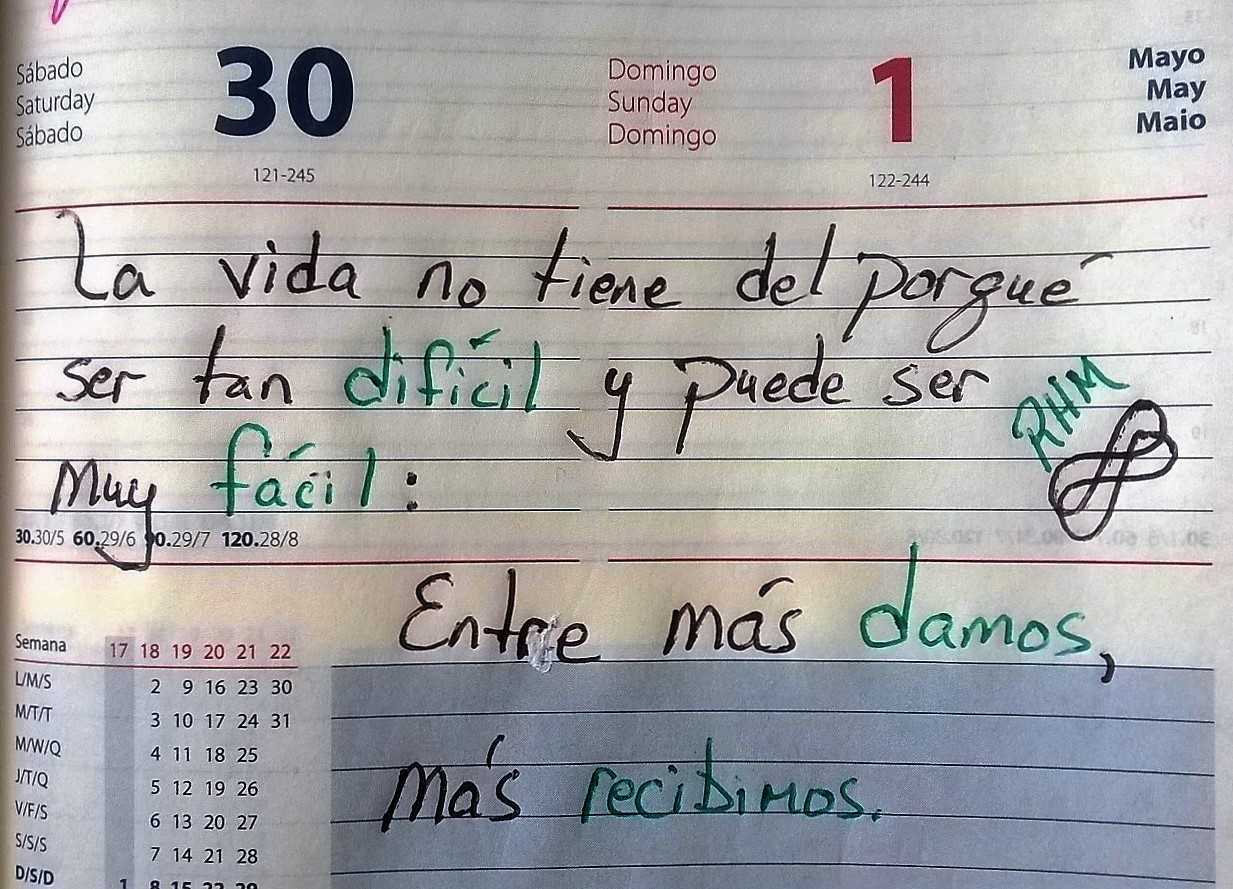 Sábado
Saturday
Sábado
30
121-245
Domingo
Sunday
Domingo
1
122-244
Mayo
May
Maio
La vida no tiene del porqué
ser tan difícil y puede ser
RHM
muy fácil:
30.30/5 60.29/6 90.29/7 120.28/8
Entre más damos,
más recibimos.
Semana 17 18 19 20 21 22
L/M/S 2 9 16 23 30
M/T/T 3 10 17 24 31
M/W/Q 4 11 18 25
J/T/Q 5 12 19 26
V/F/S 6 13 20 27
S/S/S 7 14 21 28
D/S/D 1 8 15 22 29